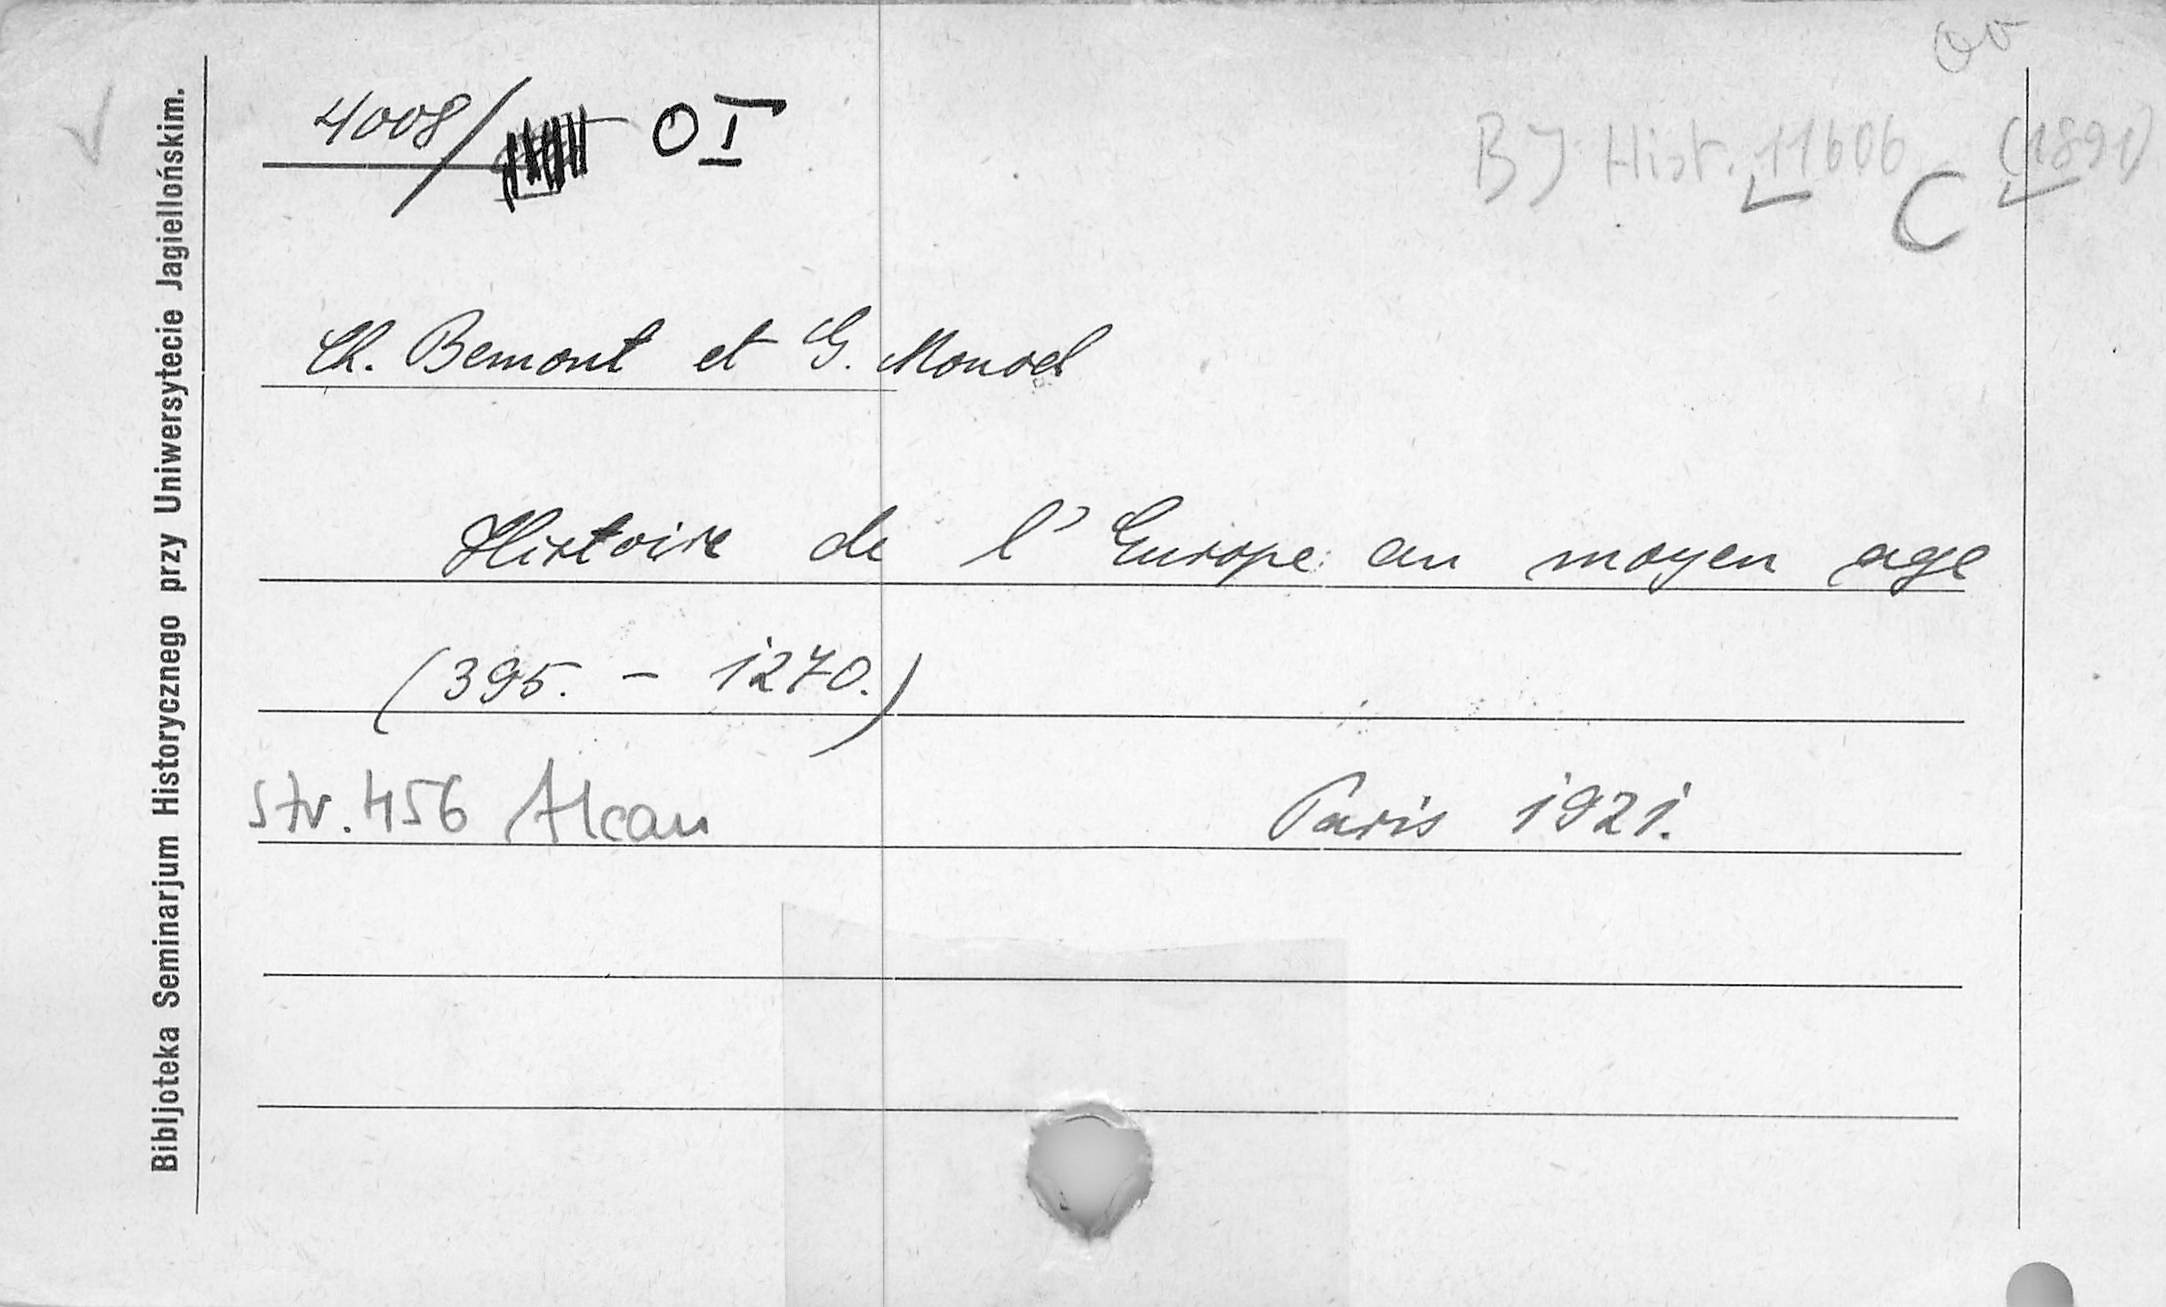 4008/ O I
BJ Hist. 11606 C (1891)
Ch. Bemont et G. Monod
Histoire de l'Europe au moyen age
(395. - 1270.)
str. 456 Alcan Paris 1921.
Bibljoteka Seminarjum Historycznego przy Uniwersytecie Jagiellońskim.